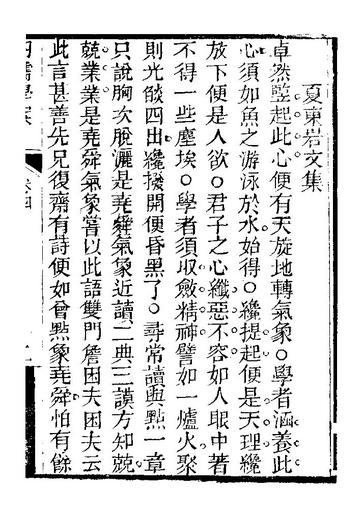 夏東岩文集
卓然豎起此心便有天旋地轉氣象○學者涵養此
心須如魚之游泳於水始得○纔提起便是天理纔
放下便是人欲○君子之心纖惡不容如人眼中著
不得一些塵埃○學者須收斂精神譬如一爐火聚
則光燄四出纔撥開便昏黑了○尋常讀與點一章
只說胸次脫灑是堯舜氣象近讀二典三謨方知兢
兢業業是堯舜氣象嘗以此語雙門詹困夫困夫云
此言甚善先兄復齋有詩便如曾點象堯舜怕有餘
明儒學案
卷四